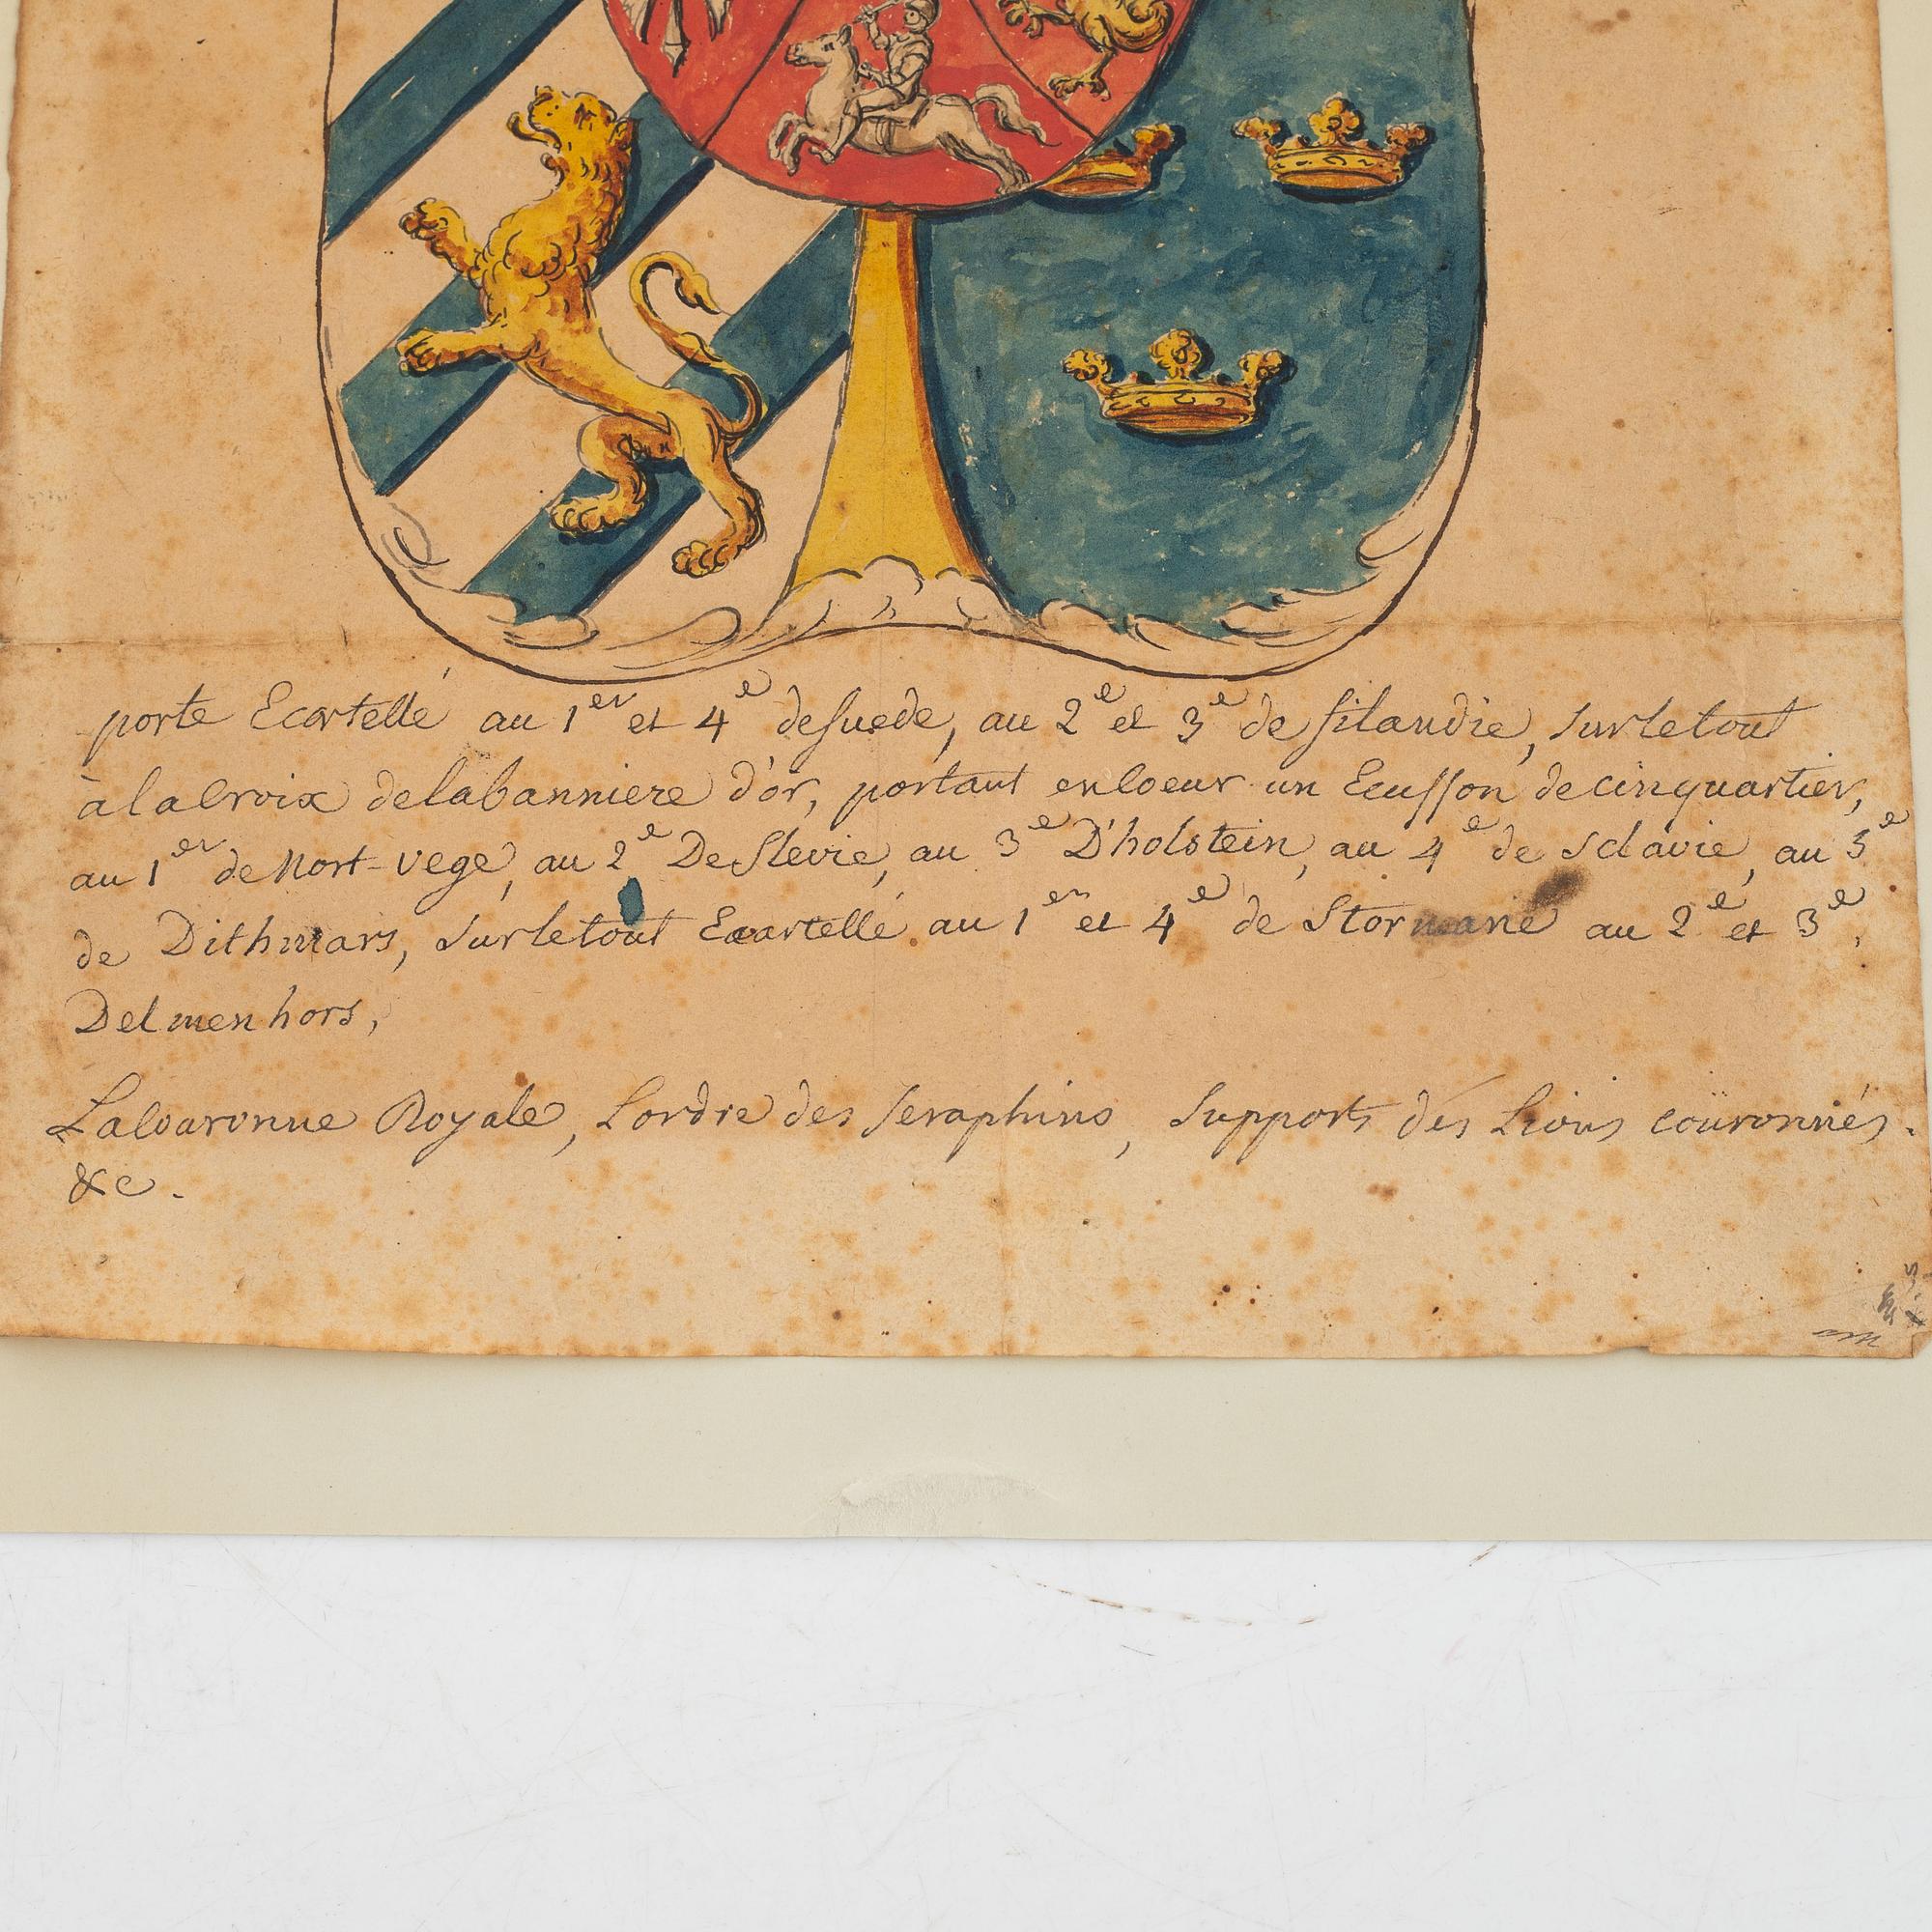 porte Ecartellé au 1er et 4e de suede, au 2e et 3e de filandie, sur le tout
à la Croix de la banniere d'or, portant en Coeur un Ecusson de cinq quartier,
au 1er de Nort-vege, au 2e De Slevie, au 3e D'holstein, au 4e de Sclavie, au 5e
de Dithmars, sur le tout Ecartellé au 1er et 4e de Stormarie au 2e et 3e,
Delmenhors,
La Couronne Royale, Lordre des seraphins, Supports des Lions couronnés.
&c.